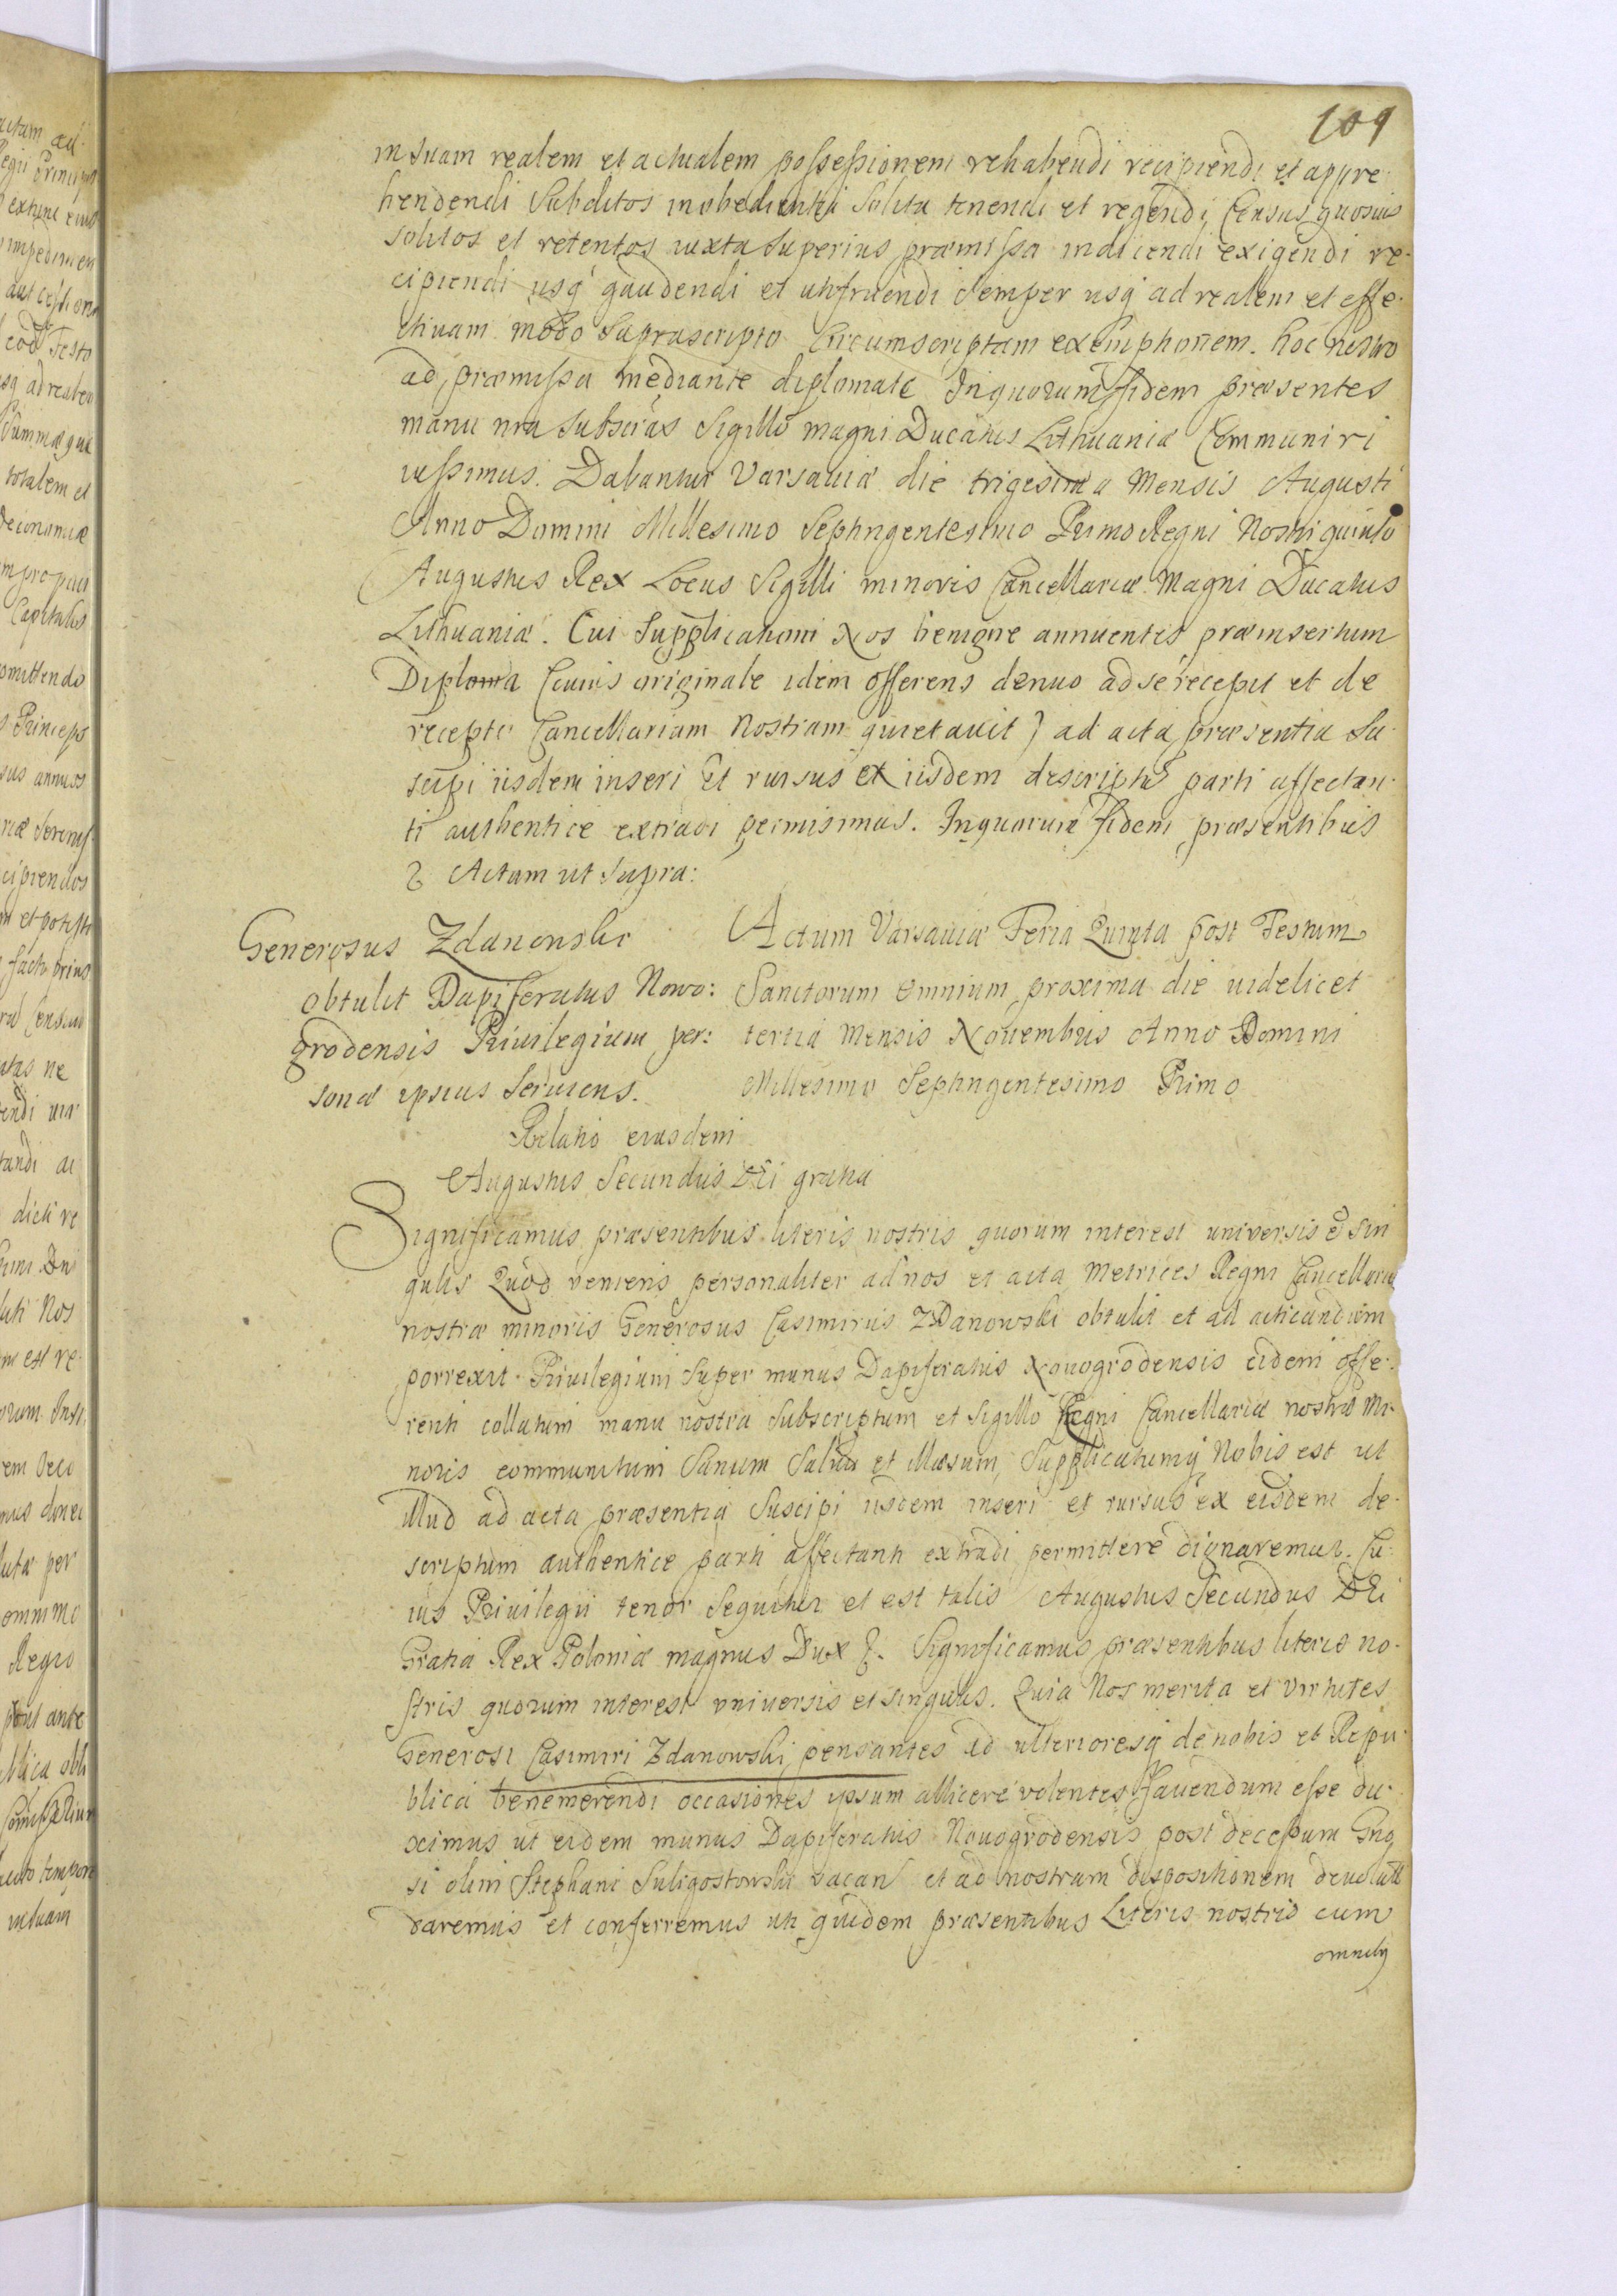 109
in suam realem et actualem possessionem rehabendi recipiendi et appre-
hendendi Subditos in obedientia solita tenendi et regendi, Census quosvis
solitos et retentos iuxta superius præmissa indicendi exigendi re-
cipiendi usq gaudendi et utifruendi semper usq ad realem et effe-
ctivam modo supra scripto circumscriptam exemptionem. hoc nostro
ad præmissa mediante diplomate In quorum fidem præsentes
manu nra subscrās Sigillo magni Ducatus Lithuaniæ Communiri
iussimus. Dabantur Varsaviæ die trigesima Mensis Augusti
Anno Domini Millesimo Septingentesimo Primo Regni Nostri quinto
Augustus Rex Locus Sigilli minoris Cancellariæ Magni Ducatus
Lithuaniæ. Cui Supplicationi Nos benigne annuentes præinsertum
Diploma (cuius originale idem offerens denuo ad se recepit et de
recepto Cancellariam Nostram quietavit) ad acta præsentia su-
scipi iisdem inseri et rursus ex iisdem descriptū parti affectan-
ti authentice extradi permisimus. In quorum fidem præsentibus
& Actum ut supra:
Generosus Zdanowski
obtulit Dapiferatus Nowo:
grodensis Privilegium per:
sonæ ipsius serviens.
Actum Varsaviæ Feria Quinta post Festum
Sanctorum omnium proxima die videlicet
tertia Mensis Novembris Anno Domini
Millesimo Septingentesimo Primo
Relatio eiusdem
Augustus Secundus Dei gratia
Significamus præsentibus literis nostris quorum interest universis & sin
gulis Quod veniens personaliter ad nos et acta Metrices Regni Cancellariæ
nostræ minoris Generosus Casimirus Zdanowski obtulit et ad acticandum
porrexit Privilegium super munus Dapiferatus Novogrodensis eidem offe-
renti collatum manu nostra subscriptum et sigillo Regni Cancellariæ nostræ Mi-
noris communitum Sanum Salvū et illæsum, Supplicatumq Nobis est ut
illud ad acta præsentia suscipi iisdem inseri et rursus ex eisdem de-
scriptum authentice parti affectanti extradi permittere dignaremur. Cu-
ius Privilegii tenor sequitur et est talis Augustus Secundus DEi
Gratia Rex Poloniæ magnus Dux &. Significamus præsentibus literis no-
stris quorum interest universis et singulis. Quia Nos merita et virtutes
Generosi Casimiri Zdanowski pensantes ad ulterioresq de nobis et Repu-
blica benemerendi occasiones ipsum allicere volentes favendum esse du-
ximus ut eidem munus Dapiferatus Novogrodensis post decessum Gnō
si olim Stephani Suligostowski vacan et ad nostram dispositionem devolutū
daremus et conferremus uti quidem præsentibus Literis nostris cum
omnibq